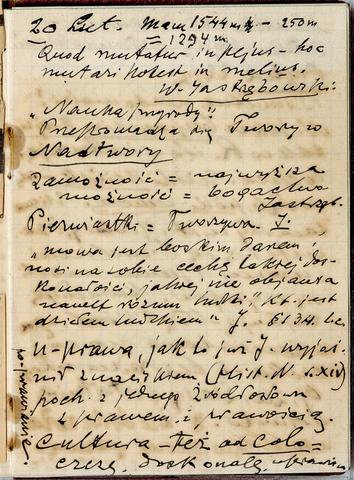 20 Lut. Mam 1544 m – 250 m
= 1294 m.
Quod mutatur in pejus – hoc
mutari potest in melius.
W. Jastrzębowski.
„Nauka przyrody":
Przeprowadza się Twory w
Nadtwory
Zamożność = najwyższa
możność = bogactwo
Jastrzęb.
Pierwiastki = Tworzywa. J.
„mowa jest boskim darem,
nosi na sobie cechę takiej dos-
konałości, jakiej nie objawia
nawet rozum ludzki", kt. jest
dziełem ludzkiem" J. § 134
u-prawa, jak to już J. wyjaś-
nił znaczkiem (Hist. N. s. XIV)
poch. z jednego źródłosłowu
z prawem i prawością.
Cultura – też od colo –
czczę, doskonalę, uprawiam
po-prawianie.